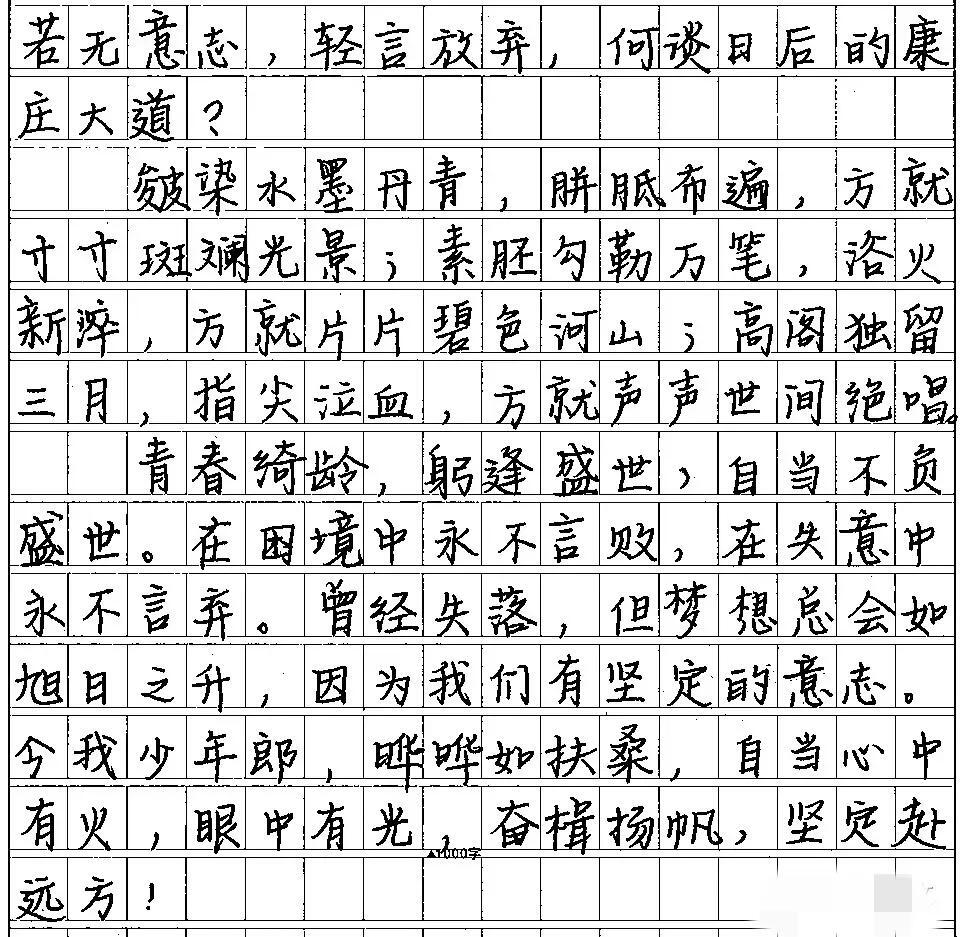 若无意志，轻言放弃，何谈日后的康
庄大道？
皴染水墨丹青，胼胝布遍，方就
寸寸斑斓光景；素胚勾勒万笔，浴火
新淬，方就片片碧色河山；高阁独留
三月，指尖泣血，方就声声世间绝唱。
青春绮龄，躬逢盛世，自当不负
盛世。在困境中永不言败，在失意中
永不言弃。曾经失落，但梦想总会如
旭日之升，因为我们有坚定的意志。
今我少年郎，晔晔如扶桑，自当心中
有火，眼中有光，奋楫扬帆，坚定赴
▲1000字
远方！